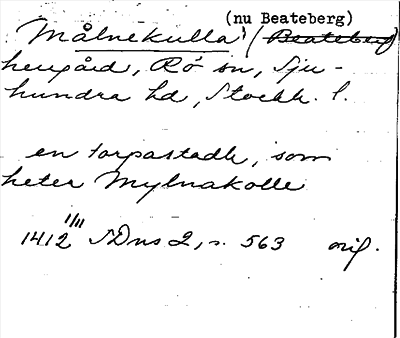 (nu Beateberg)
Målnekulla) (Beateberg
herrgård, Rö sn, Sju-
hundra hd, Stockh. l.
en torpastadh, som
heter Mylnakolle
1412 1/11 SDns 2, s. 563 orig.